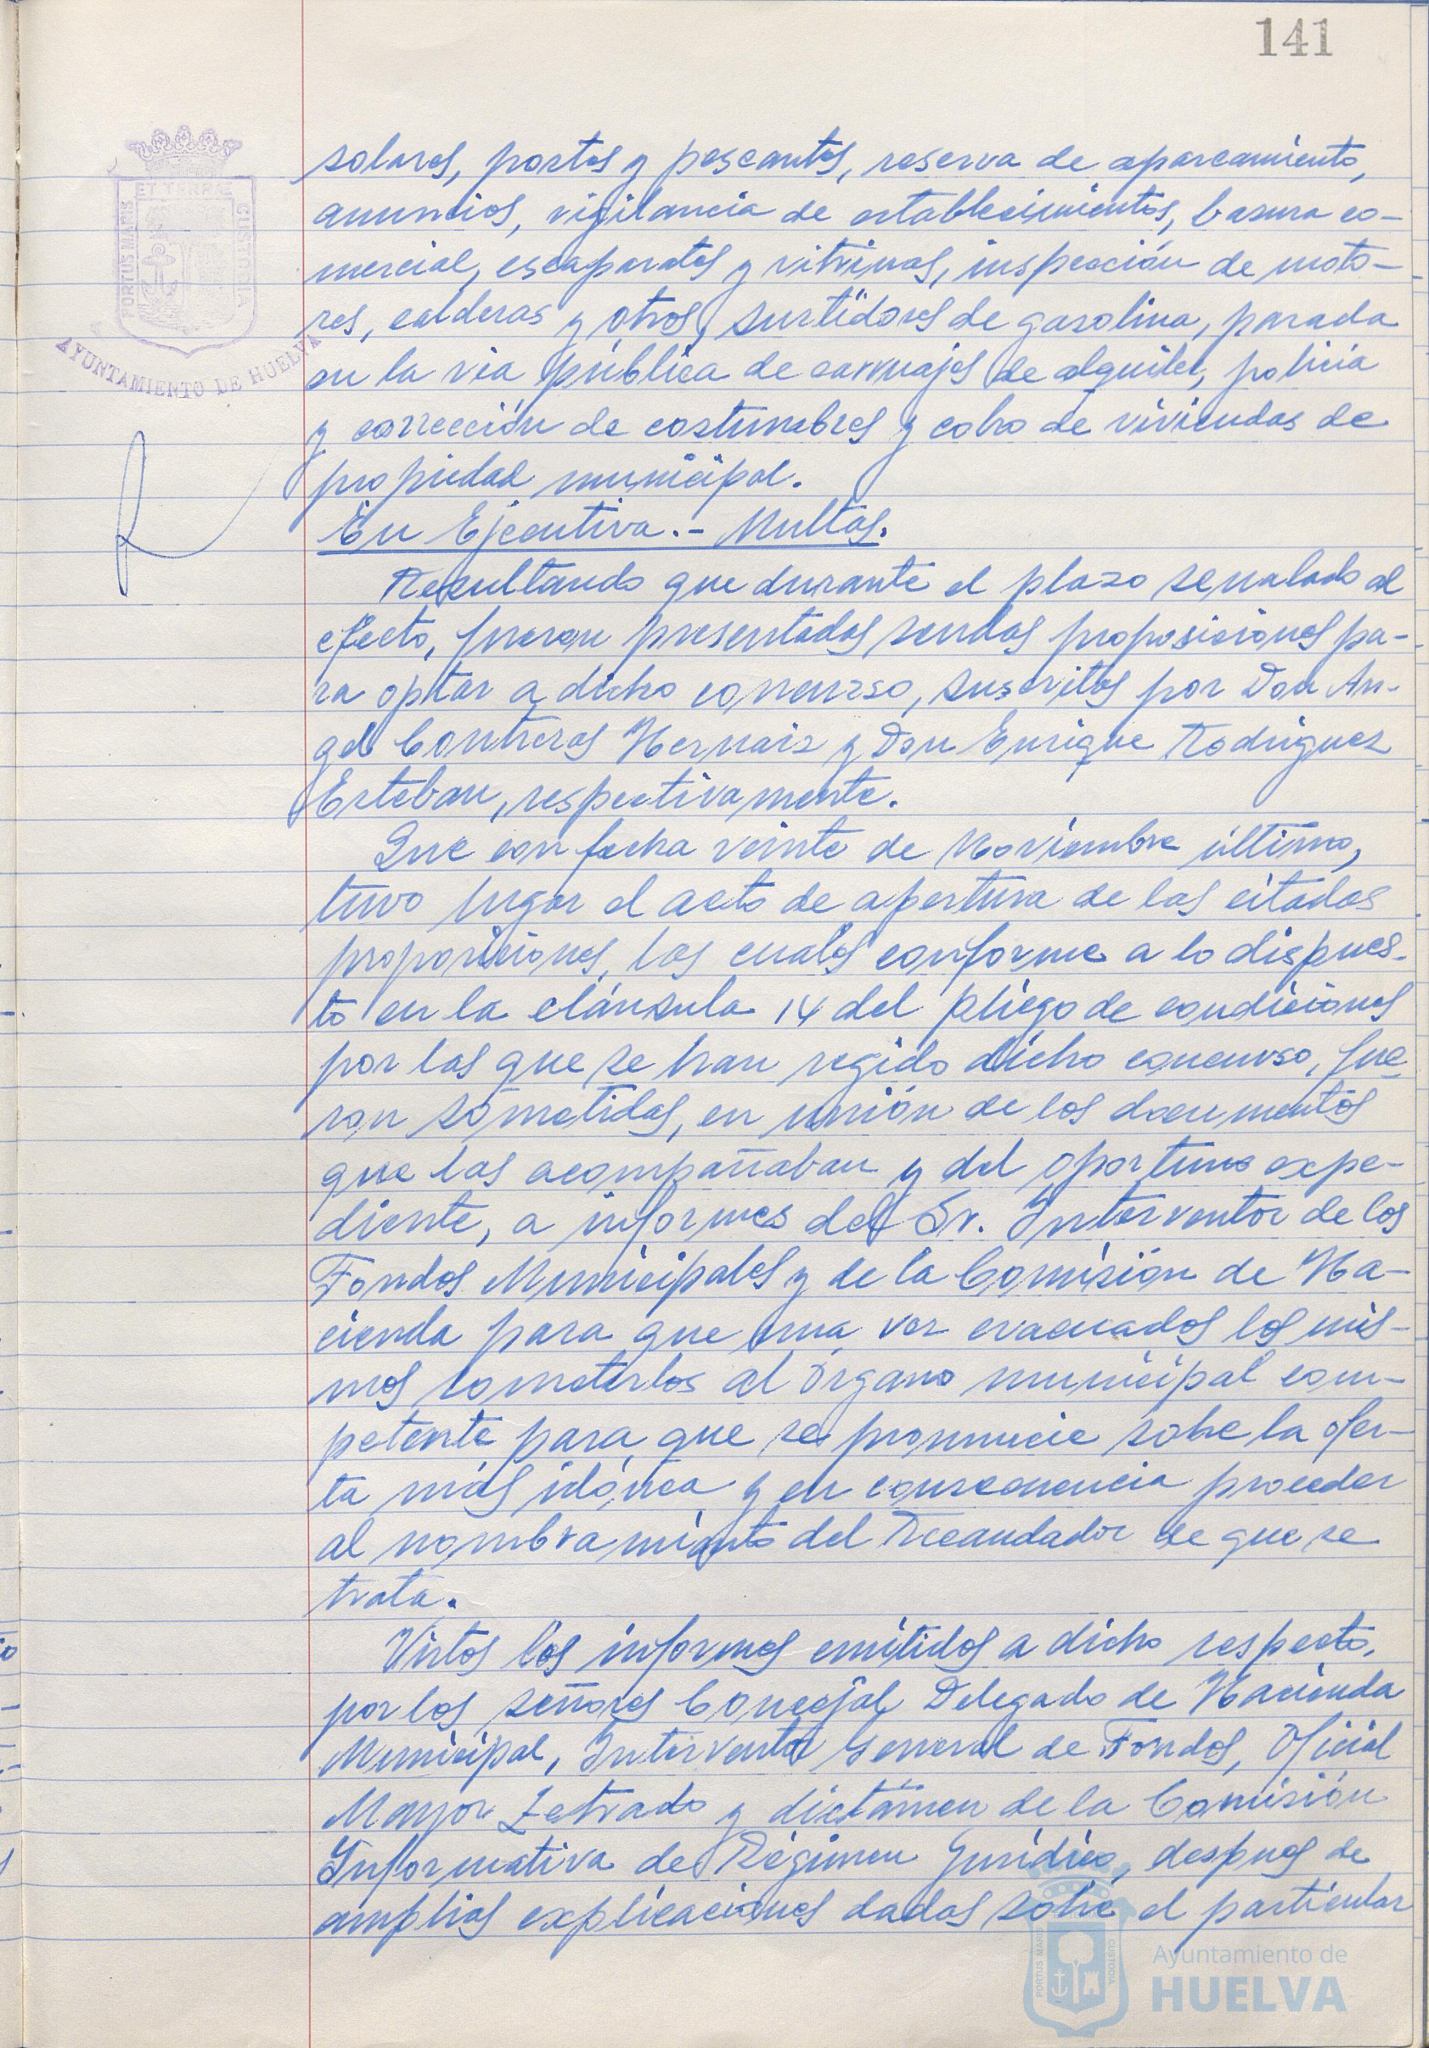 141
ET TERRAE
PORTUS MARIS
CUSTODIA
AYUNTAMIENTO DE HUELVA
solares, postes y pescantes, reserva de aparcamiento,
anuncios, vigilancia de establecimientos, basura co-
mercial, escaparates y vitrinas, inspección de moto-
res, calderas y otros, surtidores de gasolina, parada
en la via pública de carruajes de alquiler, policia
y corrección de costumbres y cobro de viviendas de
propiedad municipal.
En Ejecutiva.- Multas.
Resultando que durante el plazo señalado al
efecto, fueron presentadas sendas proposiciones pa-
ra optar a dicho concurso, suscritas por Don An-
gel Contreras Hernaiz y Don Enrique Rodriguez
Esteban, respectivamente.
Que con fecha veinte de Noviembre último,
tuvo lugar el acto de apertura de las citadas
proposiciones, las cuales conforme a lo dispues-
to en la cláusula 14 del pliego de condiciones
por las que se han regido dicho concurso, fue
ron sometidas, en unión de los documentos
que las acompañaban y del oportuno expe-
diente, a informes del Sr. Interventor de los
Fondos Municipales y de la Comisión de Ha-
cienda para que una vez evacuados los mis-
mos someterlos al Órgano municipal com-
petente para que se pronuncie sobre la ofer-
ta más idónea y en consecuencia proceder
al nombramiento del Recaudador de que se
trata.
Vistos los informes emitidos a dicho respecto,
por los señores Concejal Delegado de Hacienda
Municipal, Interventor General de Fondos, Oficial
Mayor Letrado y dictámen de la Comisión
Informativa de Régimen Jurídico, despues de
amplias explicaciones dadas sobre el particular
PORTUS MARIS
CUSTODIA
Ayuntamiento de
HUELVA